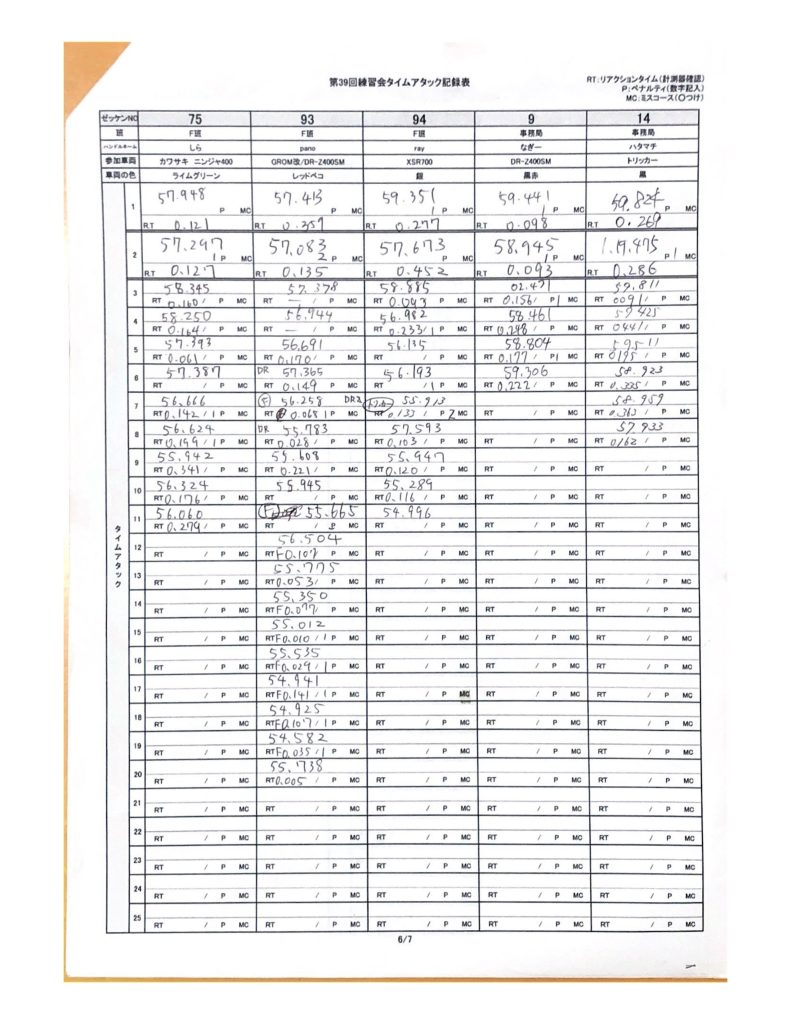 第39回練習会タイムアタック記録表
RT:リアクションタイム(計測器確認)
P:ペナルティ(数字記入)
MC:ミスコース(〇つけ)
ゼッケンNO 75 93 94 9 14
班 F班 F班 F班 事務局 事務局
ハンドルネーム しら pano ray なぎー ハタマチ
参加車両 カワサキ ニンジャ400 GROM改/DR-Z400SM XSR700 DR-Z400SM トリッカー
車両の色 ライムグリーン レッドペコ 銀 黒赤 黒
タイムアタック
1 57.948 57.413 59.351 59.441 59.824
P MC P MC 1 P MC 1 P MC P MC
RT 0.121 RT 0.357 RT 0.277 RT 0.098 RT 0.269
2 57.297 57.083 57.673 58.945 1.19.475
1 P MC 2 P MC P MC 1 P MC P 1 MC
RT 0.127 RT 0.135 RT 0.452 RT 0.093 RT 0.286
3 58.345 57.378 58.885 02.471 59.811
RT 0.160 / P MC RT — / P MC RT 0.093 / P MC RT 0.156 / P 1 MC RT 0091 / P MC
4 58.250 56.944 56.982 58.461 59.425
RT 0.164 / P MC RT — / P MC RT 0.233 / 1 P MC RT 0.248 / P MC RT 0441 / P MC
5 57.393 56.691 56.135 58.804 59511
RT 0.061 / P MC RT 0.170 / P MC RT / P MC RT 0.177 / P 1 MC RT 0195 / P MC
6 57.387 DR 57.365 56.193 59.306 58.923
RT / P MC RT 0.149 / P MC RT / 1 P MC RT 0.222 / P MC RT 0.335 / P MC
7 56.666 F 56.258 DRZ 55.913 58.959
RT 0.142 / 1 P MC RT 0.068 1 P MC RT 0.133 / P 2 MC RT / P MC RT 0.363 / P MC
8 56.624 DR 55.783 57.593 57.933
RT 0.199 / 1 P MC RT 0.028 / P MC RT 0.103 / P MC RT / P MC RT 0162 / P MC
9 55.942 55.608 55.947
RT 0.341 / P MC RT 0.221 / P MC RT 0.120 / P MC RT / P MC RT / P MC
10 56.324 55.945 55.289
RT 0.176 / P MC RT / P MC RT 0.116 / P MC RT / P MC RT / P MC
11 56.060 F 55.665 54.996
RT 0.279 / P MC RT / P MC RT / P MC RT / P MC RT / P MC
12 56.504
RT / P MC RT F0.107 P MC RT / P MC RT / P MC RT / P MC
13 55.775
RT / P MC RT 0.053 / P MC RT / P MC RT / P MC RT / P MC
14 55.350
RT / P MC RT F0.077 P MC RT / P MC RT / P MC RT / P MC
15 55.012
RT / P MC RT F0.010 / 1 P MC RT / P MC RT / P MC RT / P MC
16 55.535
RT / P MC RT F0.029 / 1 P MC RT / P MC RT / P MC RT / P MC
17 54.941
RT / P MC RT F0.141 / 1 P MC RT / P MC RT / P MC RT / P MC
18 54.925
RT / P MC RT F0.107 / 1 P MC RT / P MC RT / P MC RT / P MC
19 54.582
RT / P MC RT F0.035 / 1 P MC RT / P MC RT / P MC RT / P MC
20 55.738
RT / P MC RT 0.005 / P MC RT / P MC RT / P MC RT / P MC
21
RT / P MC RT / P MC RT / P MC RT / P MC RT / P MC
22
RT / P MC RT / P MC RT / P MC RT / P MC RT / P MC
23
RT / P MC RT / P MC RT / P MC RT / P MC RT / P MC
24
RT / P MC RT / P MC RT / P MC RT / P MC RT / P MC
25
RT / P MC RT / P MC RT / P MC RT / P MC RT / P MC
6/7